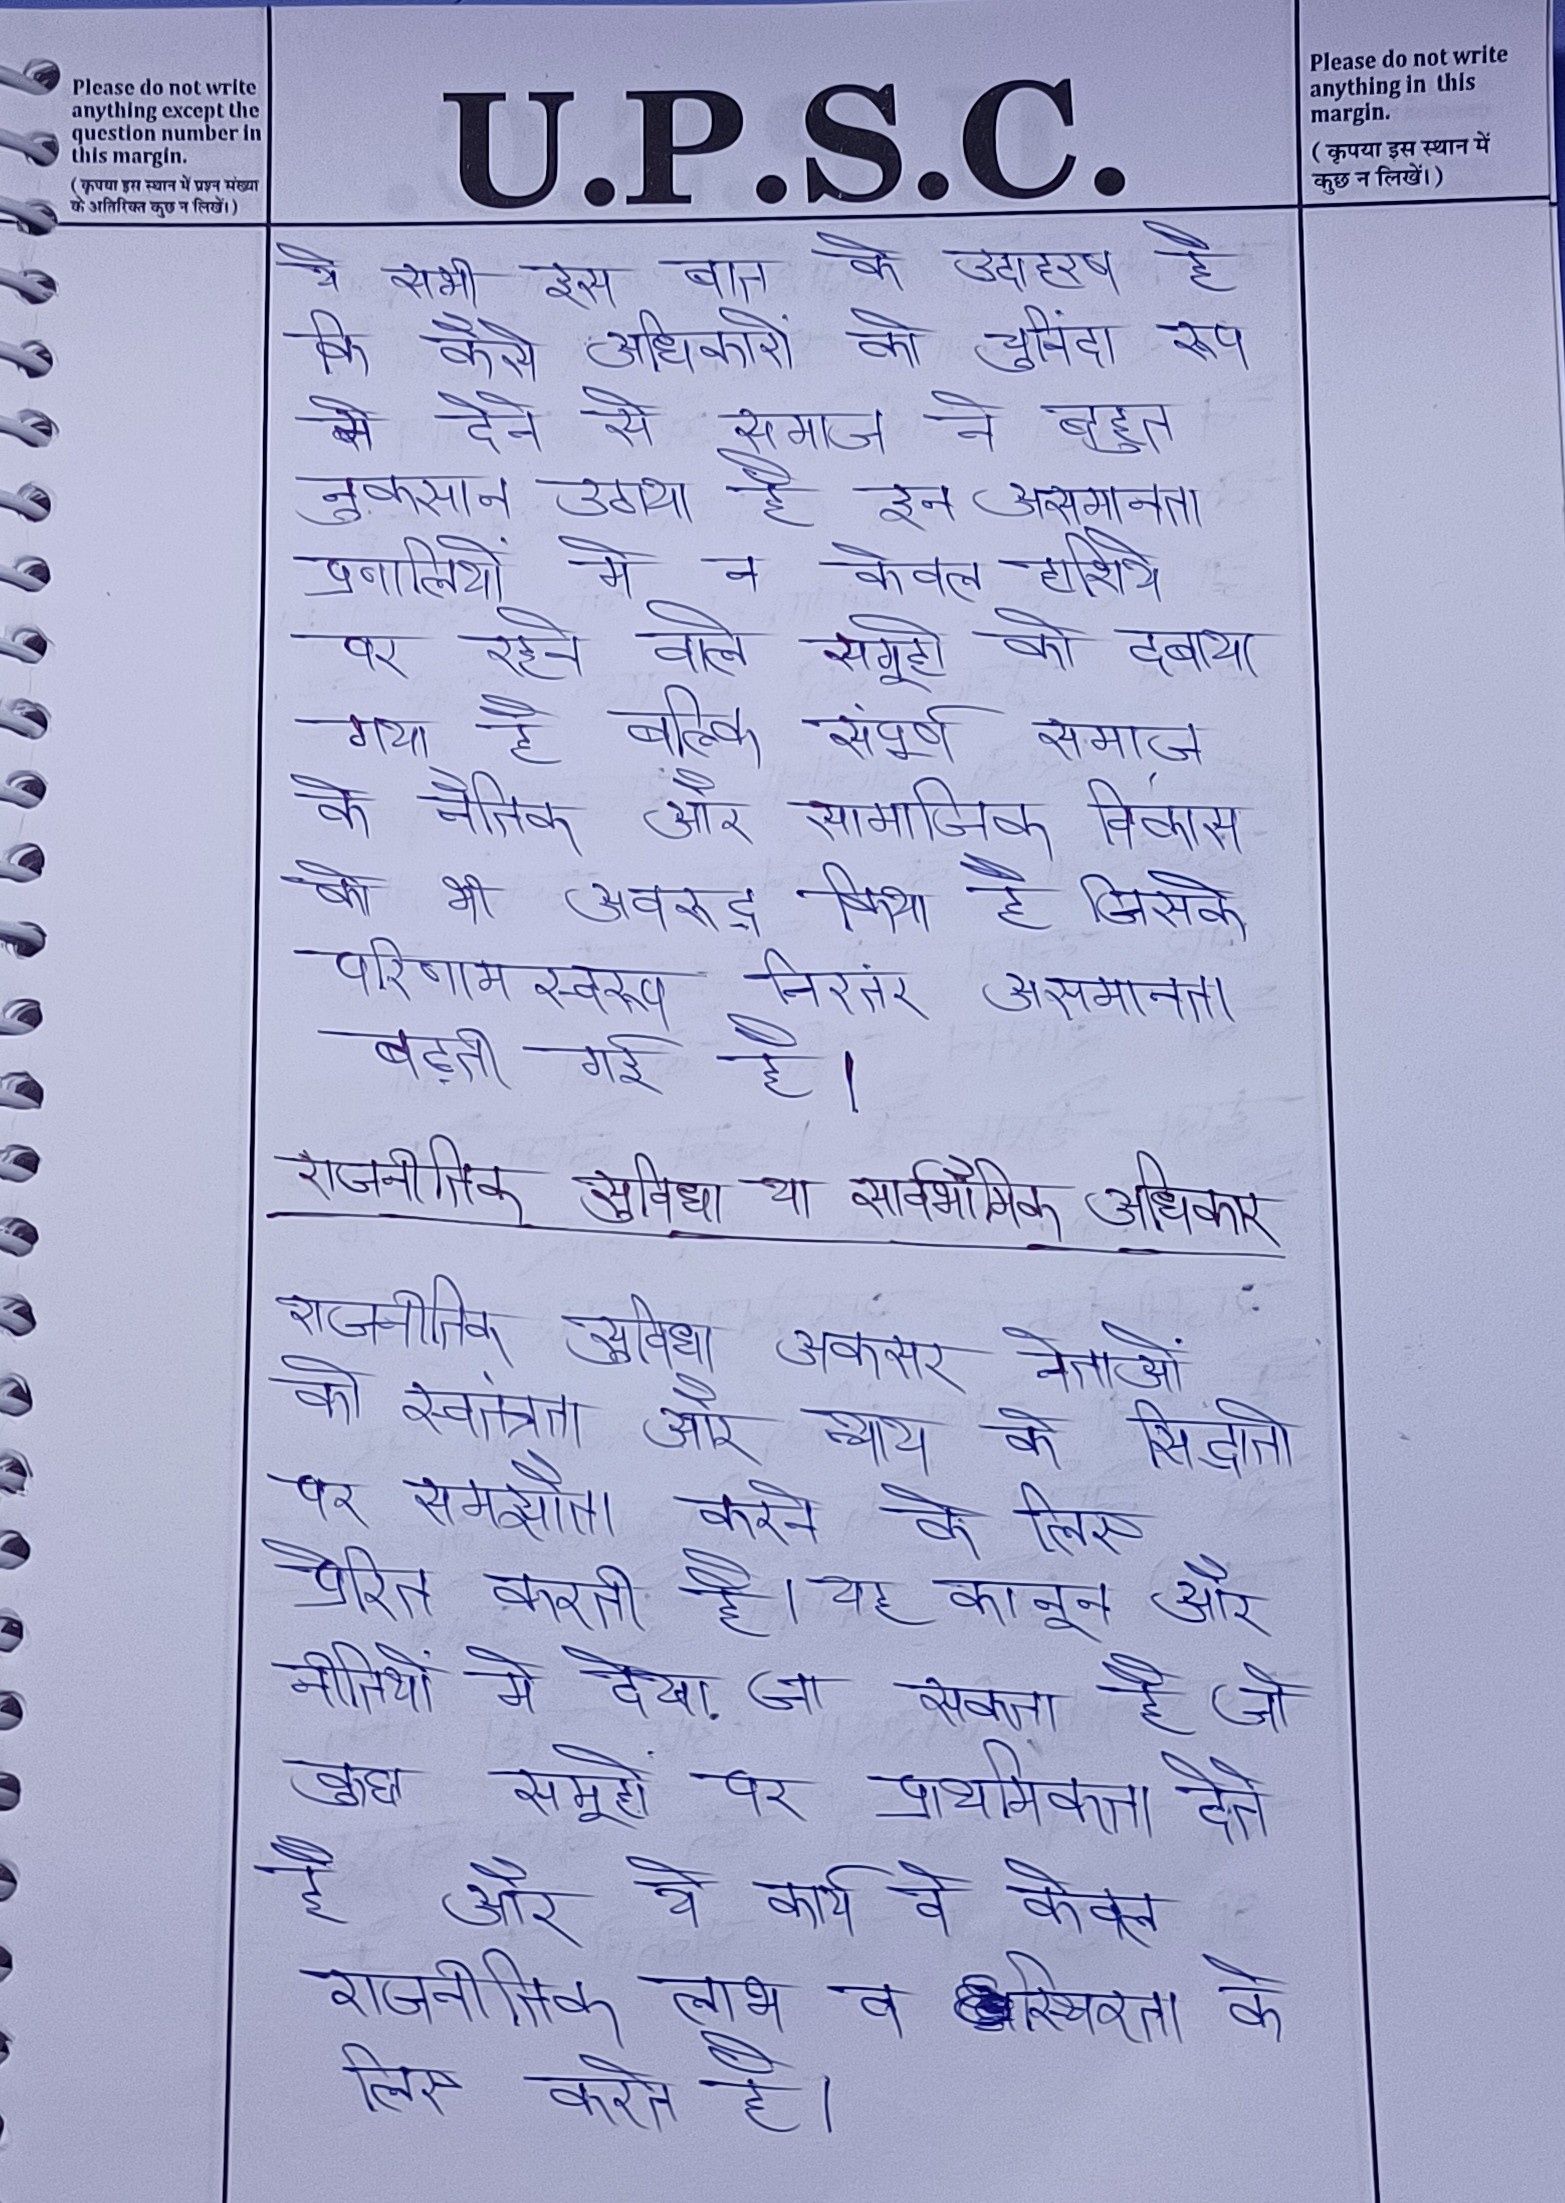 Please do not write
anything except the
question number in
this margin.
(कृपया इस स्थान में प्रश्न संख्या
के अतिरिक्त कुछ न लिखें।)
U.P.S.C.
Please do not write
anything in this
margin.
(कृपया इस स्थान में
कुछ न लिखें।)
ये सभी इस बात के उदाहरण है
कि कैसे अधिकारों को चुनिंदा रूप
से देने से समाज ने बहुत
नुकसान उठाया है इन असमानता
प्रनालियों मे न केवल हाशिये
पर रहने वाले समूहो को दबाया
गया है बल्कि संपूर्ण समाज
के नैतिक और सामाजिक विकास
को भी अवरुद्ध किया है जिसके
परिणाम स्वरूप निरतंर असमानता
बढ़ती गई है।
राजनीतिक सुविधा या सार्वभौमिक अधिकार
राजनीतिक सुविधा अकसर नेताओं
को स्वतंत्रता और न्याय के सिद्धांतो
पर समझौता करने के लिए
प्रेरित करती है। यह कानून और
नीतियों मे देखा जा सकता है जो
कुछ समूहों पर प्राथमिकता देते
है और ये कार्य वे केवल
राजनीतिक लाभ व स्थिरता के
लिए करते है।